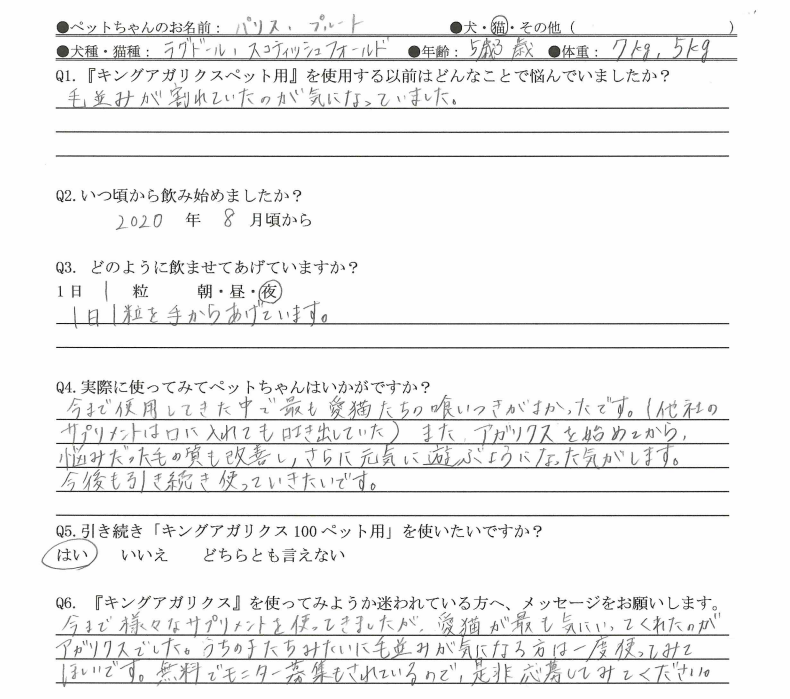 ●ペットちゃんのお名前： パリス、プルート ●犬・猫・その他（ ）
●犬種・猫種： ラグドール、スコティッシュフォールド ●年齢： 5歳3歳 ●体重： 7kg, 5kg
Q1.『キングアガリクスペット用』を使用する以前はどんなことで悩んでいましたか？
毛並みが割れていたのが気になっていました。
Q2.いつ頃から飲み始めましたか？
2020 年 8 月頃から
Q3. どのように飲ませてあげていますか？
1日 1 粒 朝・昼・夜
1日1粒を手からあげています。
Q4.実際に使ってみてペットちゃんはいかがですか？
今まで使用してきた中で最も愛猫たちの喰いつきがよかったです。(他社の
サプリメントは口に入れても吐き出していた) また、アガリクスを始めてから、
悩みだった毛の質も改善し、さらに元気に遊ぶようになった気がします。
今後も引き続き使っていきたいです。
Q5.引き続き「キングアガリクス100ペット用」を使いたいですか？
はい いいえ どちらとも言えない
Q6. 『キングアガリクス』を使ってみようか迷われている方へ、メッセージをお願いします。
今まで様々なサプリメントを使ってきましたが、愛猫が最も気にいってくれたのが
アガリクスでした。うちの子たちみたいに毛並みが気になる方は一度使ってみて
ほしいです。無料でモニター募集もされているので、是非応募してみてください。